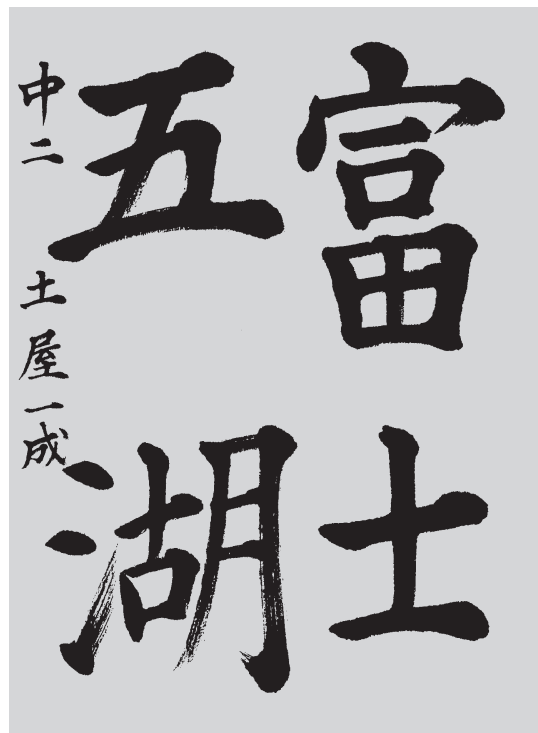 富士
五湖
中二 土屋一成